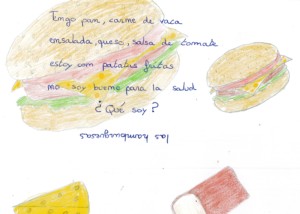 Tengo pan, carne de vaca
ensalada, queso, salsa de tomate
estoy con patatas fritas
no soy bueno para la salud
¿Qué soy?
las hamburguesas